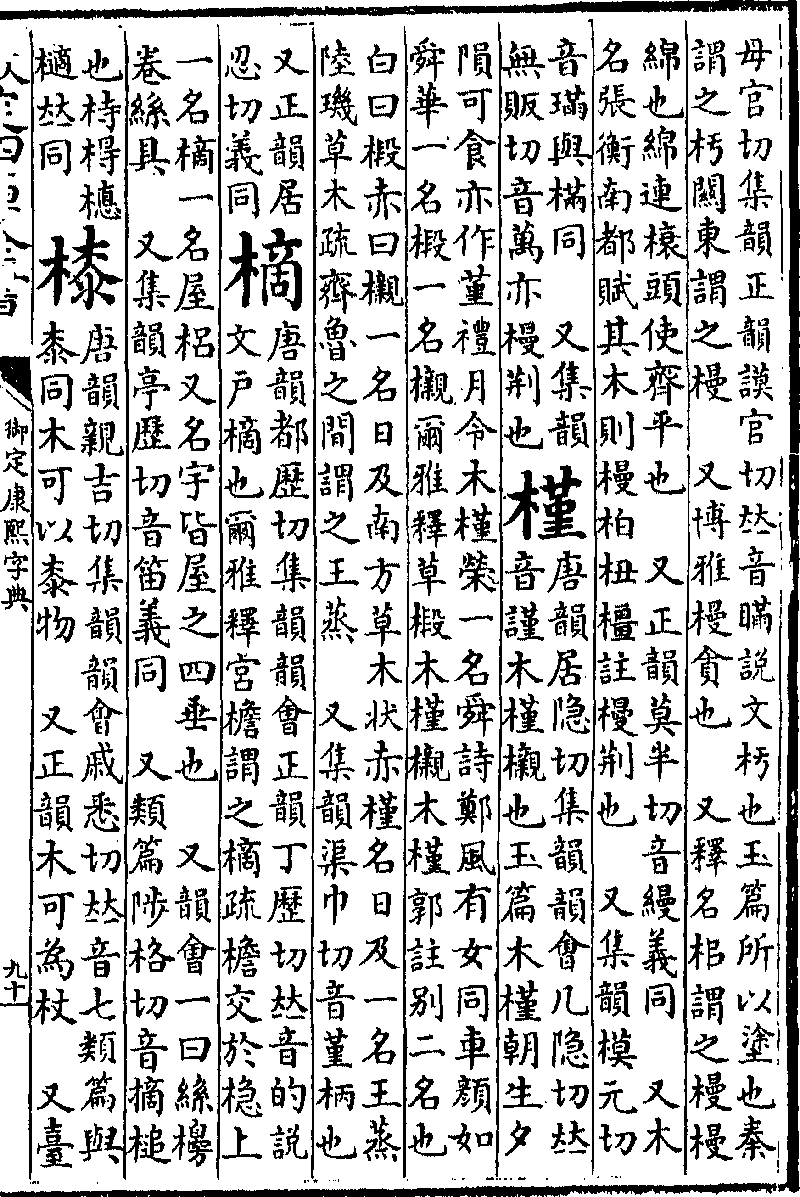 毋官切集韻正韻謨官切𠀤音瞞說文杇也玉篇所以塗也秦
謂之杇關東謂之槾 又博雅槾貪也 又釋名梠謂之槾槾
綿也綿連榱頭使齊平也 又正韻莫半切音縵義同 又木
名張衡南都賦其木則槾柏杻橿註槾荆也 又集韻模元切
音璊與樠同 又集韻
無販切音萬亦槾荆也
槿
唐韻居隱切集韻韻會几隱切𠀤
音謹木槿櫬也玉篇木槿朝生夕
隕可食亦作堇禮月令木槿榮一名舜詩鄭風有女同車顏如
舜華一名椵一名櫬爾雅釋草椵木槿櫬木槿郭註别二名也
白曰椵赤曰櫬一名日及南方草木狀赤槿名日及一名王蒸
陸璣草木疏齊魯之間謂之王蒸 又集韻渠巾切音堇柄也
又正韻居
忍切義同
樀
唐韻都歷切集韻韻會正韻丁歷切𠀤音的說
文戶樀也爾雅釋宮檐謂之樀疏檐交於檼上
一名樀一名屋梠又名宇皆屋之四垂也 又韻會一曰絲樀
卷絲具 又集韻亭歷切音笛義同 又類篇陟格切音摘槌
也棏
樀𠀤同
㯃
唐韻親吉切集韻韻會戚悉切𠀤音七類篇與
桼同木可以桼物 又正韻木可為杖 又臺
御定康熙字典
九十